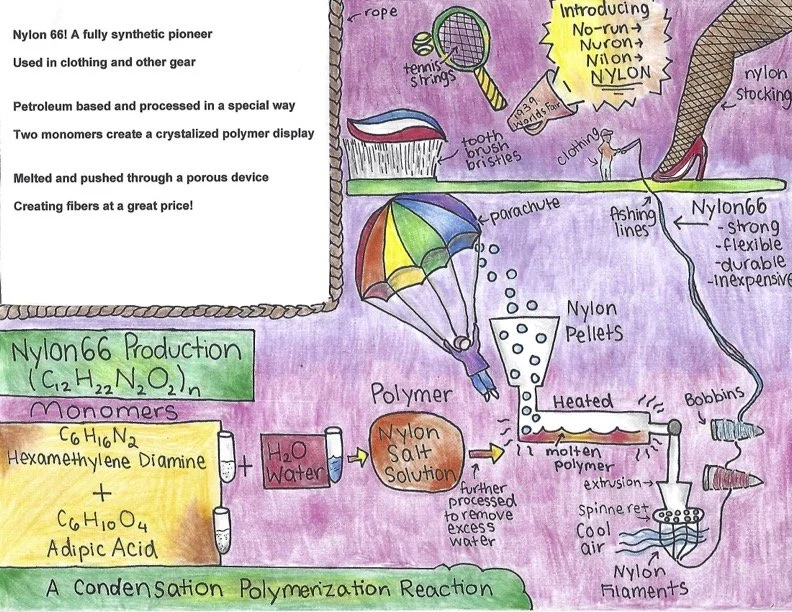 Nylon 66! A fully synthetic pioneer
Used in clothing and other gear
Petroleum based and processed in a special way
Two monomers create a crystalized polymer display
Melted and pushed through a porous device
Creating fibers at a great price!
rope
tennis
strings
Introducing
No-run→
Nuron→
Nilon→
NYLON
1939
Worlds Fair
nylon
stocking
tooth
brush
bristles
clothing
fishing
lines
Nylon66
-strong
-flexible
-durable
-inexpensive
parachute
Nylon
Pellets
Nylon66 Production
(C12H22N2O2)n
Monomers
C6H16N2
Hexamethylene Diamine
+
C6H10O4
Adipic Acid
+
H2O
Water
Polymer
Nylon
Salt
Solution
further
processed
to remove
excess
water
Heated
molten
polymer
Bobbins
extrusion→
spinneret
Cool
air
Nylon
Filaments
A Condensation Polymerization Reaction